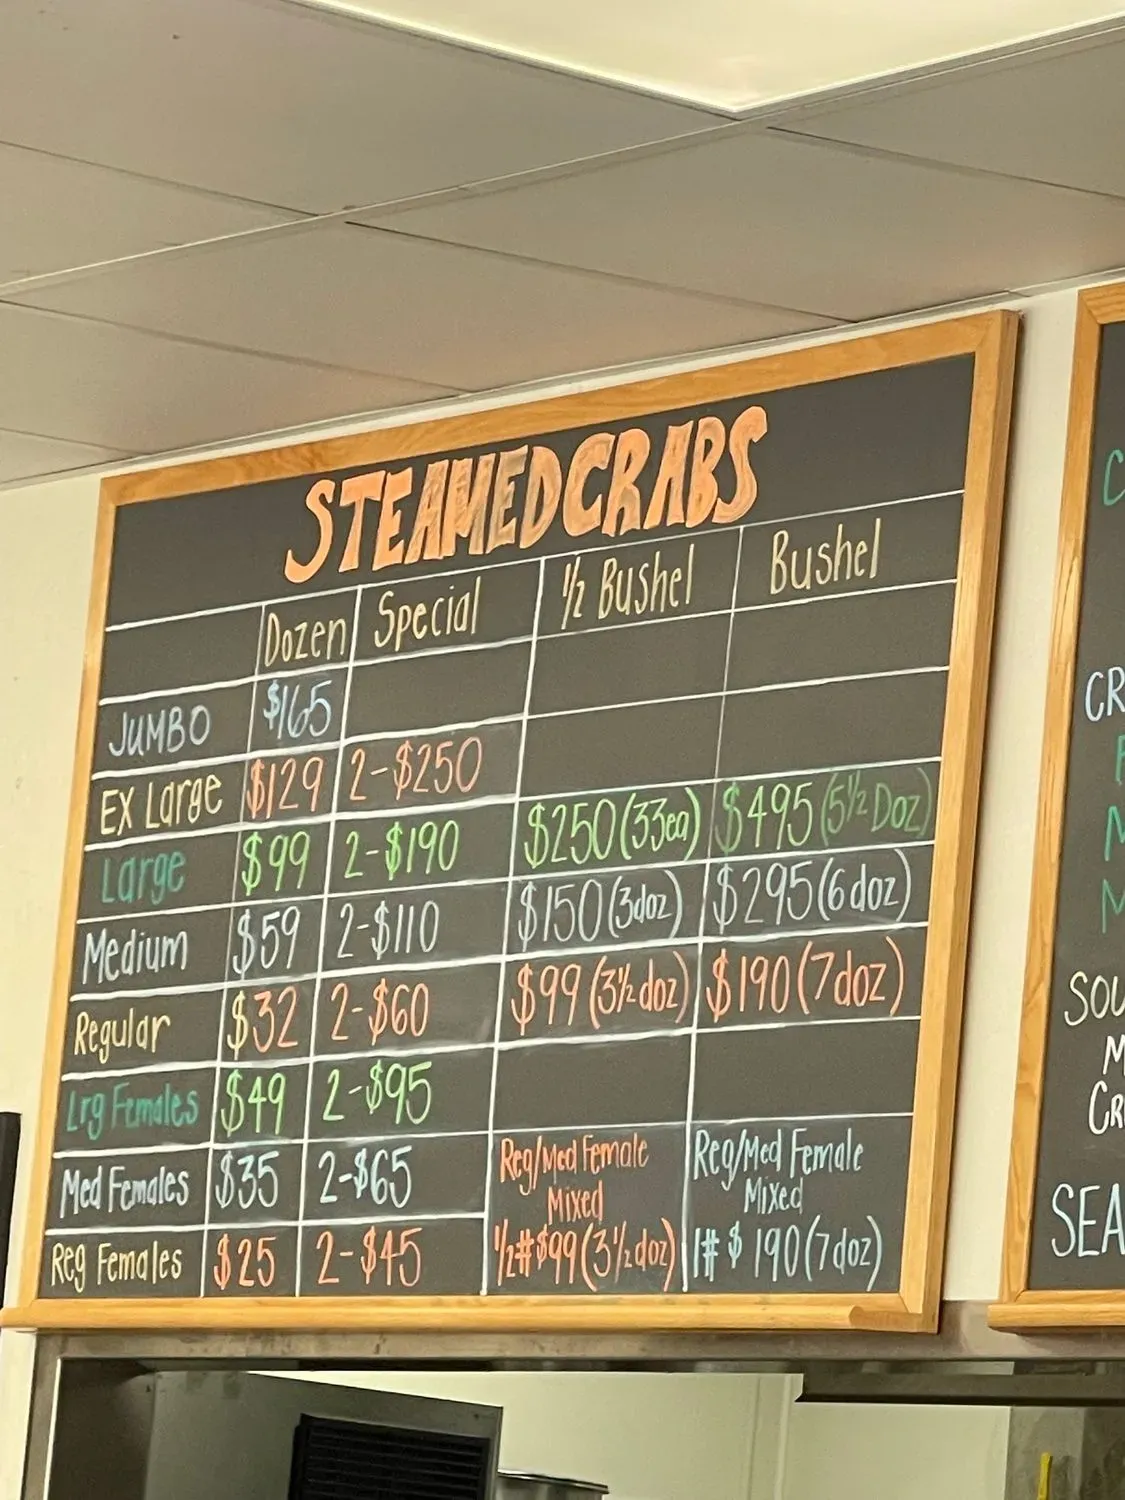 STEAMED CRABS
Dozen Special 1/2 Bushel Bushel
JUMBO $165
EX Large $129 2-$250
Large $99 2-$190 $250(33ea) $495(5 1/2 Doz)
Medium $59 2-$110 $150(3doz) $295(6doz)
Regular $32 2-$60 $99(3 1/2 doz) $190(7doz)
Lrg Females $49 2-$95
Med Females $35 2-$65
Reg/Med Female
Mixed
Reg/Med Female
Mixed
Reg Females $25 2-$45 1/2# $99(3 1/2 doz) 1# $190(7doz)